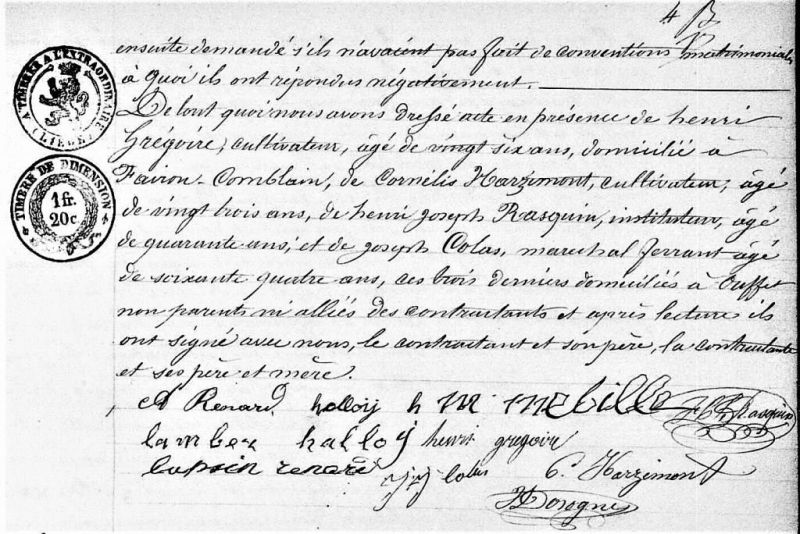 4 B
ensuite demandé s'ils n'avaient pas fait de conventions matrimoniales,
à quoi ils ont répondus négativement.
De tout quoi nous avons dressé acte en présence de henri
Grégoire, cultivateur, âgé de vingt six ans, domicilié à
Fairon-Comblain, de Cornélis Harzimont, cultivateur, âgé
de vingt trois ans, de henri joseph Rasquin, instituteur, âgé
de quarante ans, et de joseph Colas, marechal ferrant âgé
de soixante quatre ans, ces trois derniers domiciliés à Ouffet
non parents ni alliés des contractants et après lecture ils
ont signé avec nous, le contractant et son père, la contractante
et ses père et mère.
A TIMBRER A L'EXTRAORDINAIRE
(LIEGE)
TIMBRE DE DIMENSION
1 fr.
20c
Renard halloij h M mebille Rasquin
lamber halloij henri gregoire
renard colas C. Harzimont